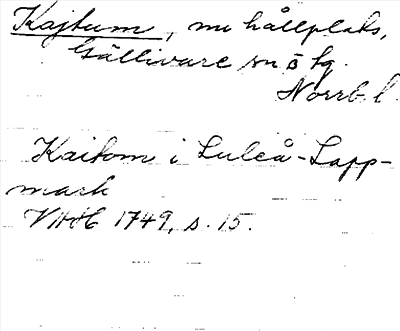 Kajtum, nu hållplats,
Gällivare sn o tg.
Norrb. l.
Kaitom i Luleå-Lapp-
mark
VAH 1749, s. 15.